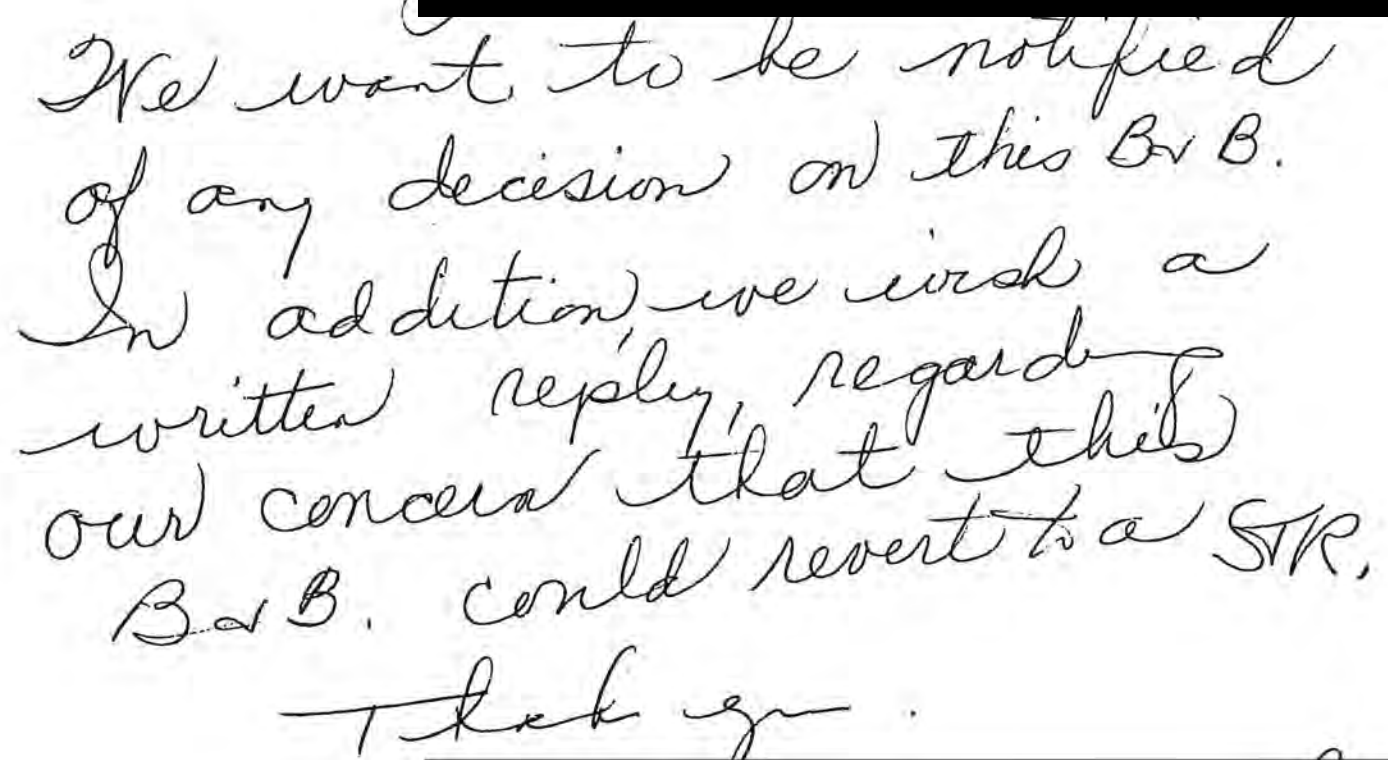 We want to be notified
of any decision on this B & B.
In addition, we wish a
written reply, regarding
our concern that this
B & B. could revert to a STR.
Thank you.